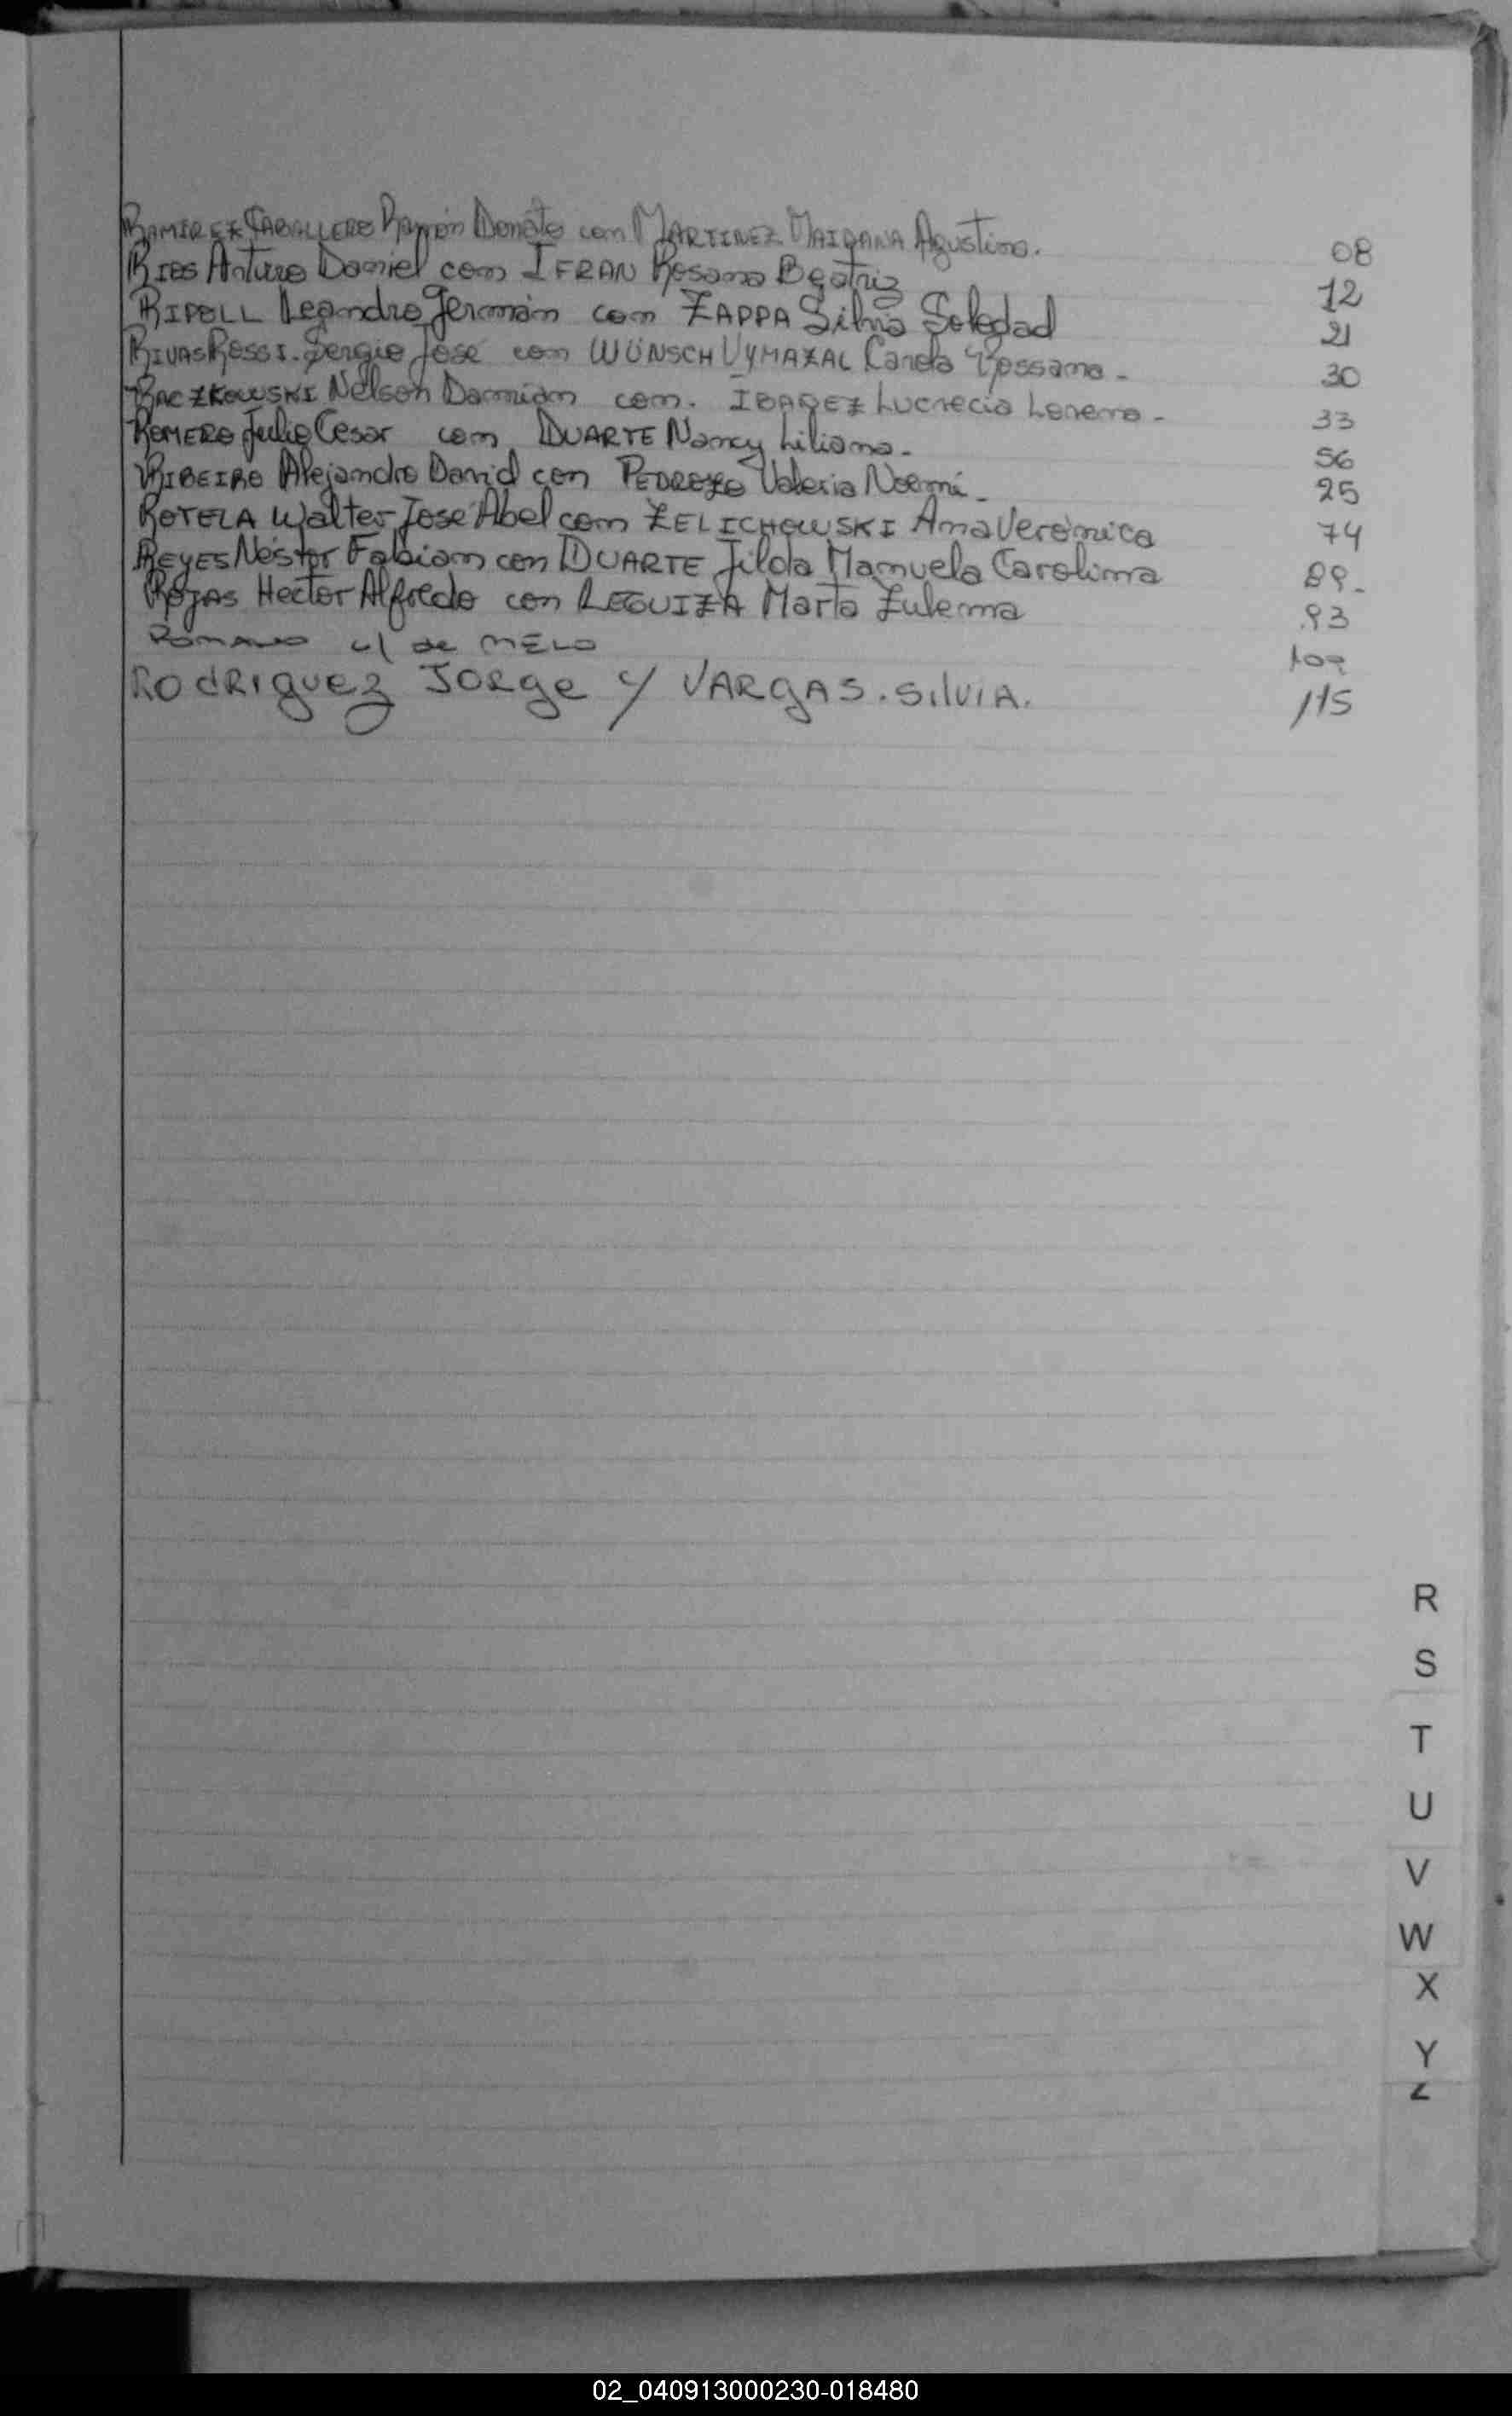 RAMIREZ CABALLERO Ramón Donato con MARTINEZ MAIDANA Agustina. 08
RIOS Arturo Daniel con IFRAN Rosana Beatriz 12
RIPOLL Leandro Germán con ZAPPA Silvia Soledad 21
RIVAS ROSSI. Sergio José con WÜNSCH VYMAZAL Carola Rossana - 30
RACZKOWSKI Nelson Damian con. IBAÑEZ Lucrecia Lorena - 33
ROMERO Julio Cesar con DUARTE Nancy Liliana - 56
RIBEIRO Alejandro David con PEDROZO Valeria Noemí - 25
ROTELA Walter José Abel con ZELICHOWSKI Ana Verónica 74
REYES Néstor Fabian con DUARTE Jilda Manuela Carolina 89-
ROJAS Hector Alfredo con LEGUIZA Marta Zulema 93
Romano c/ de MELO
RODRIGUEZ JORGE Y VARGAS. SILVIA. 115
R
S
T
U
V
W
X
Y
Z
02_040913000230-018480